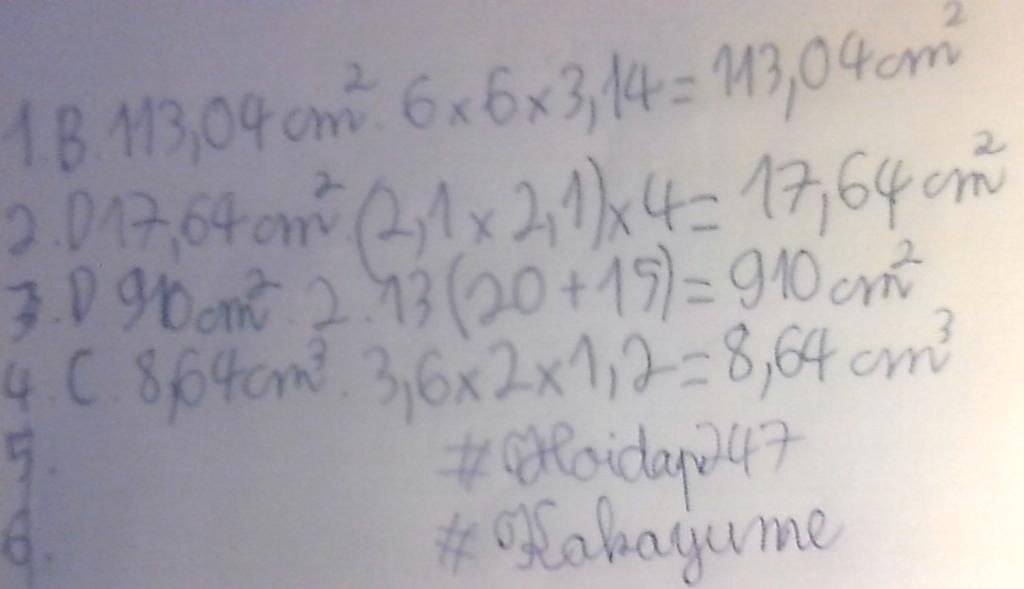 1.B. 113,04 cm². 6 x 6 x 3,14 = 113,04 cm²
2.D 17,64 cm². (2,1 x 2,1) x 4 = 17,64 cm²
3.D 910 cm². 2.13 (20 + 15) = 910 cm²
4.C. 8,64 cm³. 3,6 x 2 x 1,2 = 8,64 cm³
5. #Hoidap247
6. #Kakayume